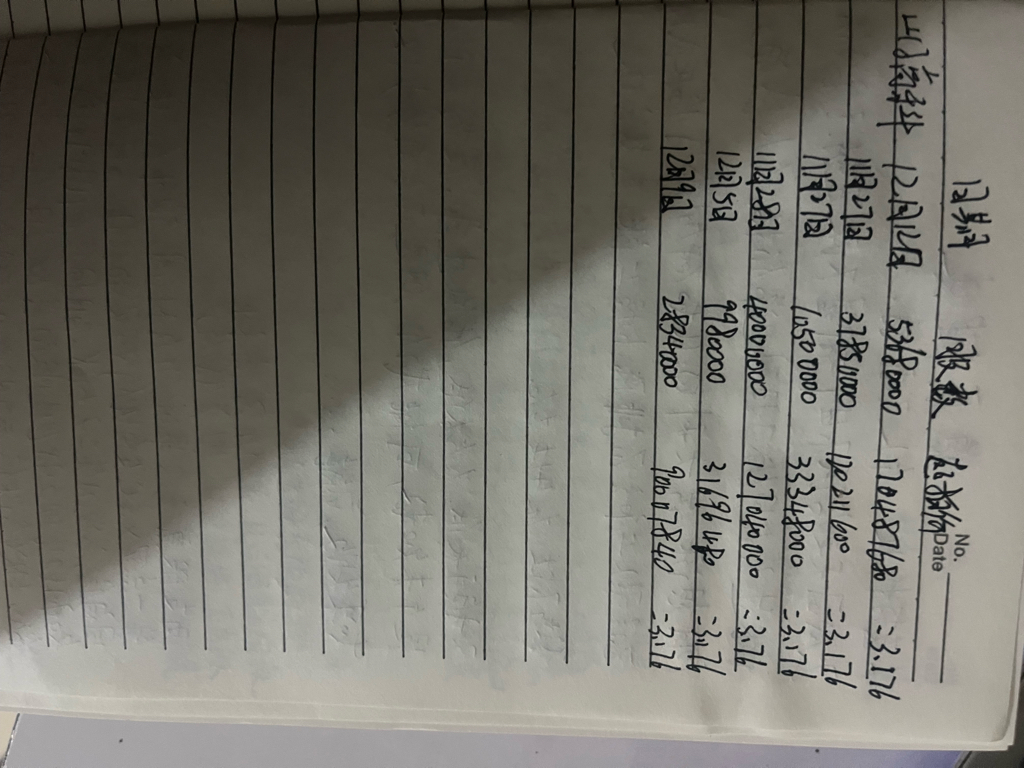 No.
Date
日期 股数 总价格
12月12日 53680000 170487680 =3.176
11月27日 37850000 120211600 =3.176
11月27日 10500000 33348000 =3.176
11月28日 40000000 127040000 =3.176
12月5日 9980000 31696480 =3.176
12月9日 28340000 90007840 =3.176